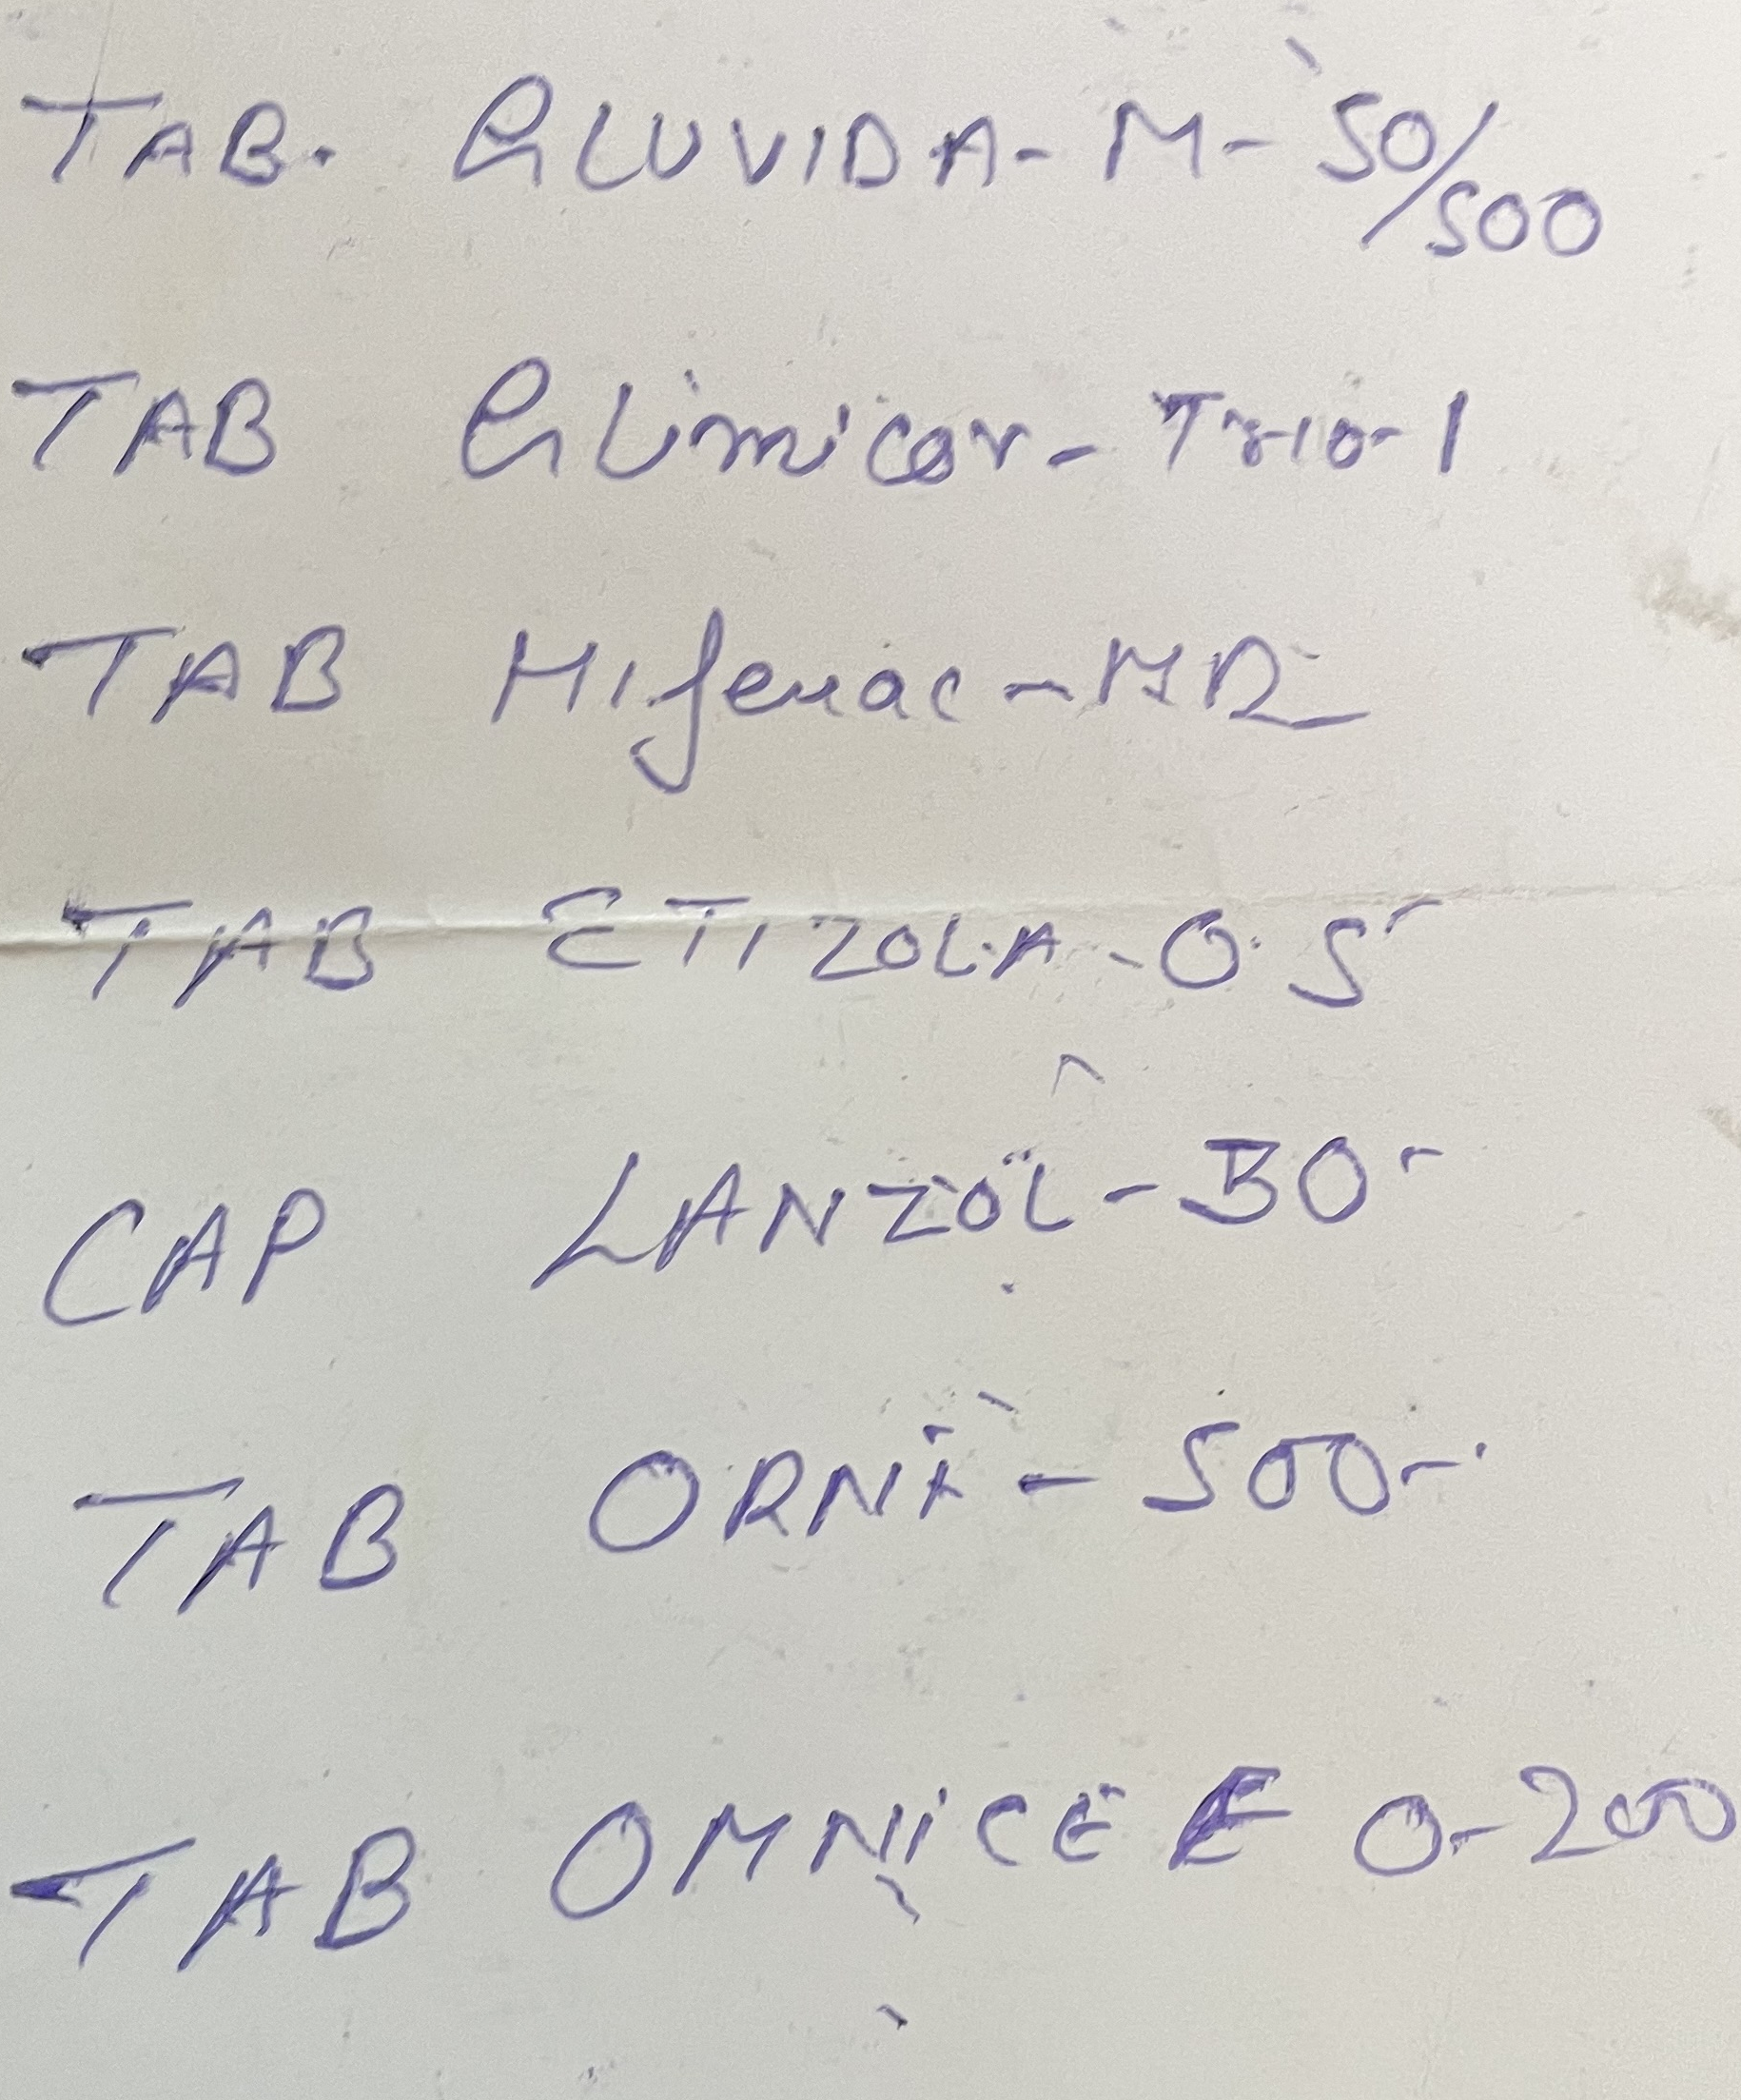 TAB. GLUVIDA-M-50/500
TAB Glimicor-Trio-1
TAB Hifenac-MR
TAB ETIZOLA-0.5
CAP LANZOL-30
TAB ORNI-500
TAB OMNICEF O-200